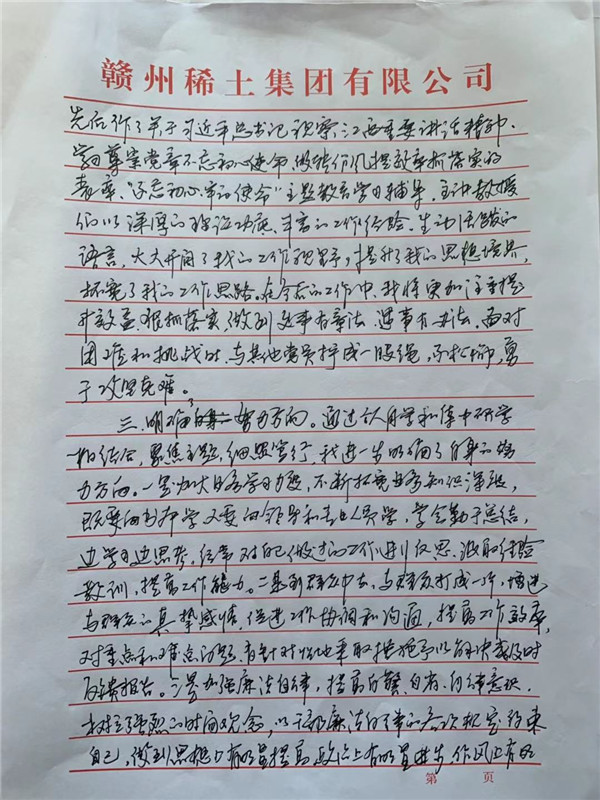 赣州稀土集团有限公司
先后作了关于习近平总书记视察江西重要讲话精神、
尊崇党章不忘初心使命、做转作风提效率抓落实的
表率、"不忘初心牢记使命"主题教育学习辅导。主讲教授
们以深厚的理论功底、丰富的工作经验、生动活跃的
语言,大大开阔了我的工作视野,提升了我的思想境界,
拓宽了我的工作思路。在今后的工作中,我将更加注重提
升效益、狠抓落实,做到处事有章法、遇事有办法。面对
困难和挑战时,与其他党员拧成一股绳,不松懈,勇
于攻坚克难。
三、明确了努力方向。通过个人自学和集中研学
相结合,聚焦主题、细照笃行,我进一步明确了自身的努
力方向。一是加大业务学习力度,不断拓宽业务知识深度,
既要向书本学又要向领导和专业人员学,学会勤于总结,
边学习边思考,经常对自己做过的工作进行反思,汲取经验
教训,提高工作能力。二是到群众中去,与群众打成一片,增进
与群众的真挚感情,促进工作协调和沟通,提高工作效率,
对重点和难点问题,有针对性地采取措施予以解决或及时
反馈报告。三是加强廉洁自律,提高自警、自省、自律意识,
树立强烈的时间观念,以干部廉洁自律和各次规定约束
自己,做到思想上有明显提高,政治上有明显进步,作风上有明
第 页